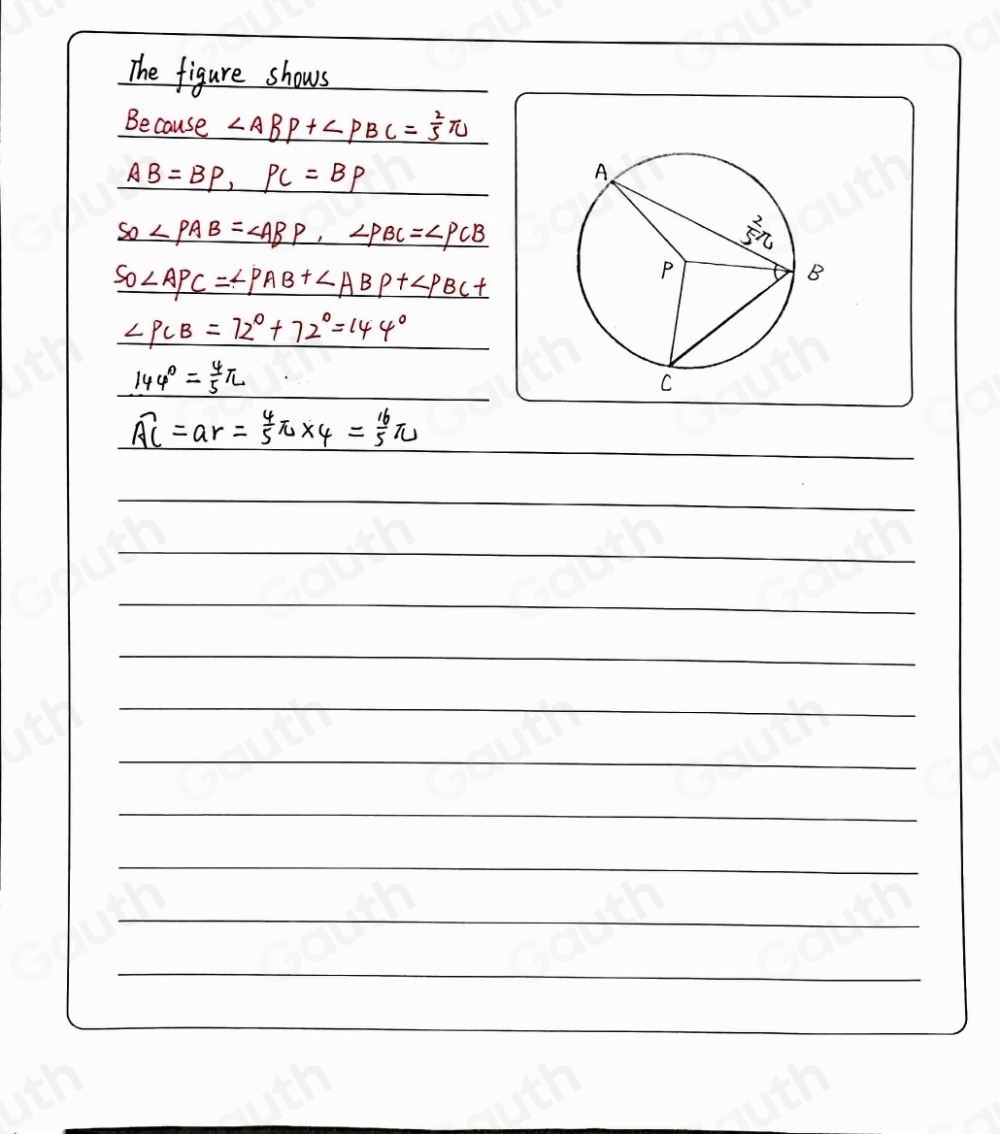 The figure shows
Because ∠ABP+∠PBC=2/5π
AB=BP, PC=BP
So ∠PAB=∠ABP, ∠PBC=∠PCB
So∠APC=∠PAB+∠ABP+∠PBC+
∠PCB=72°+72°=144°
144°=4/5π
A͡C=ar=4/5π×4=16/5π
A
2/5π
P
B
C
Gauth